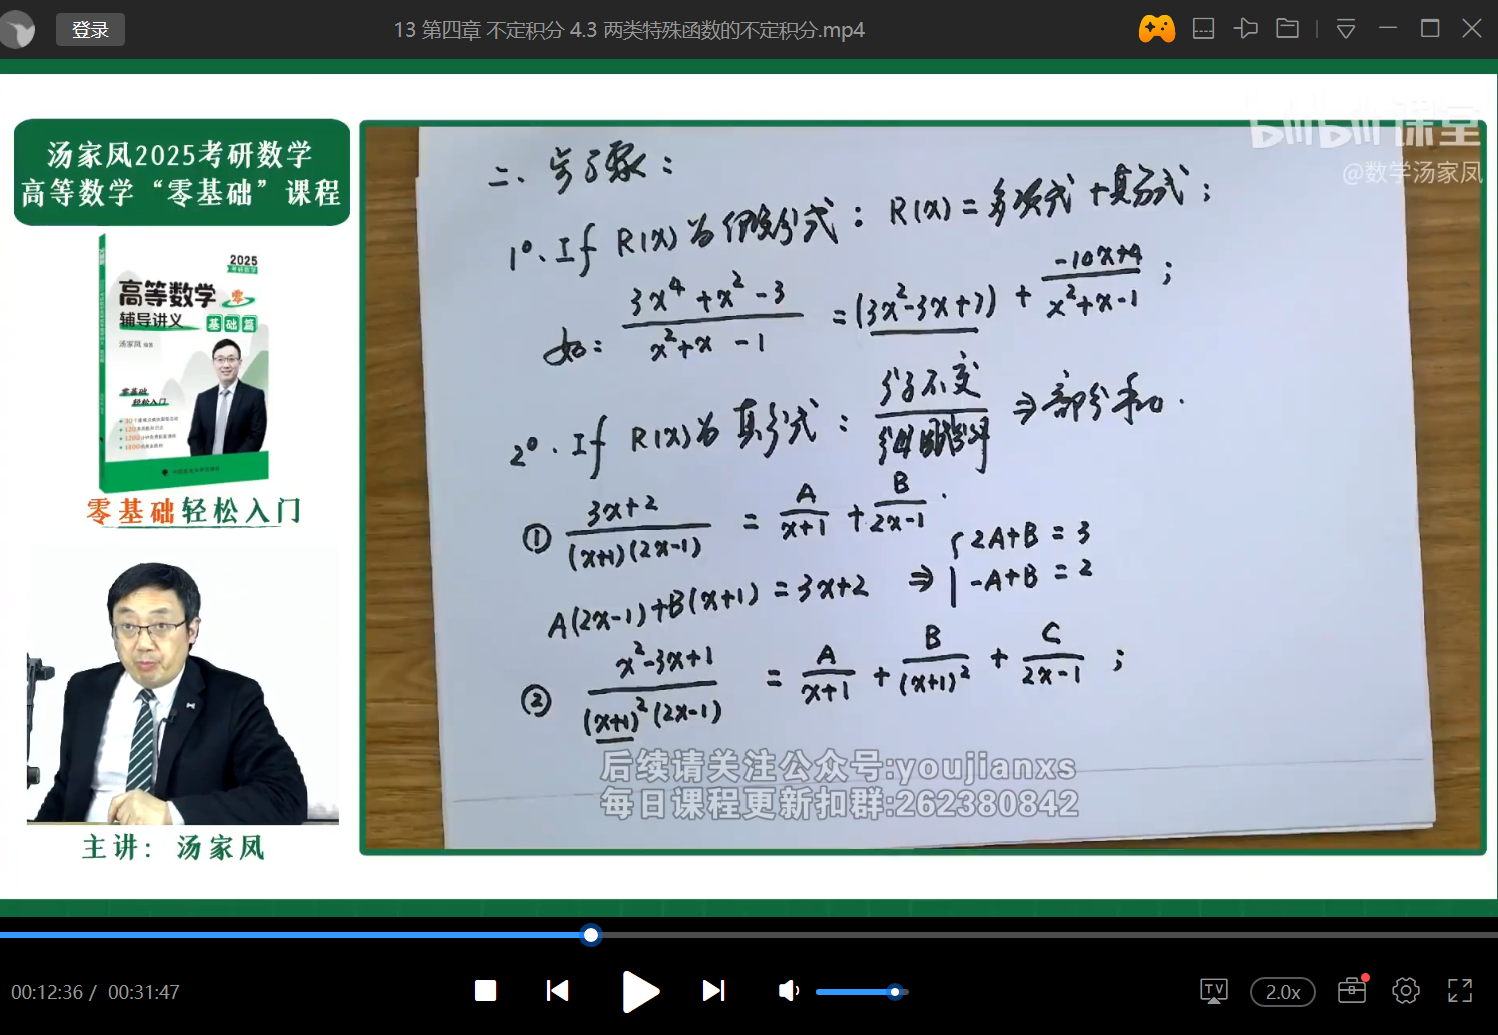 登录
13 第四章 不定积分 4.3 两类特殊函数的不定积分.mp4
汤家凤2025考研数学
高等数学“零基础”课程
2025
考研数学
高等数学 零
辅导讲义 基础篇
汤家凤 编著
零基础
轻松入门
零基础轻松入门
主讲：汤家凤
bilibili课堂
@数学汤家凤
二、步骤：
1°. If R(x)为假分式：R(x) = 多项式 + 真分式；
如：(3x⁴+x²-3)/(x²+x-1) = (3x²-3x+7) + (-10x+4)/(x²+x-1)；
2°. If R(x)为真分式：分子不变/分母因式分解 ⇒ 部分和.
① (3x+2)/((x+1)(2x-1)) = A/(x+1) + B/(2x-1).
A(2x-1)+B(x+1) = 3x+2 ⇒ { 2A+B = 3
-A+B = 2
② (x²-3x+1)/((x+1)²(2x-1)) = A/(x+1) + B/(x+1)² + C/(2x-1)；
后续请关注公众号:youjianxs
每日课程更新扣群:262380842
00:12:36 / 00:31:47
TV
2.0x